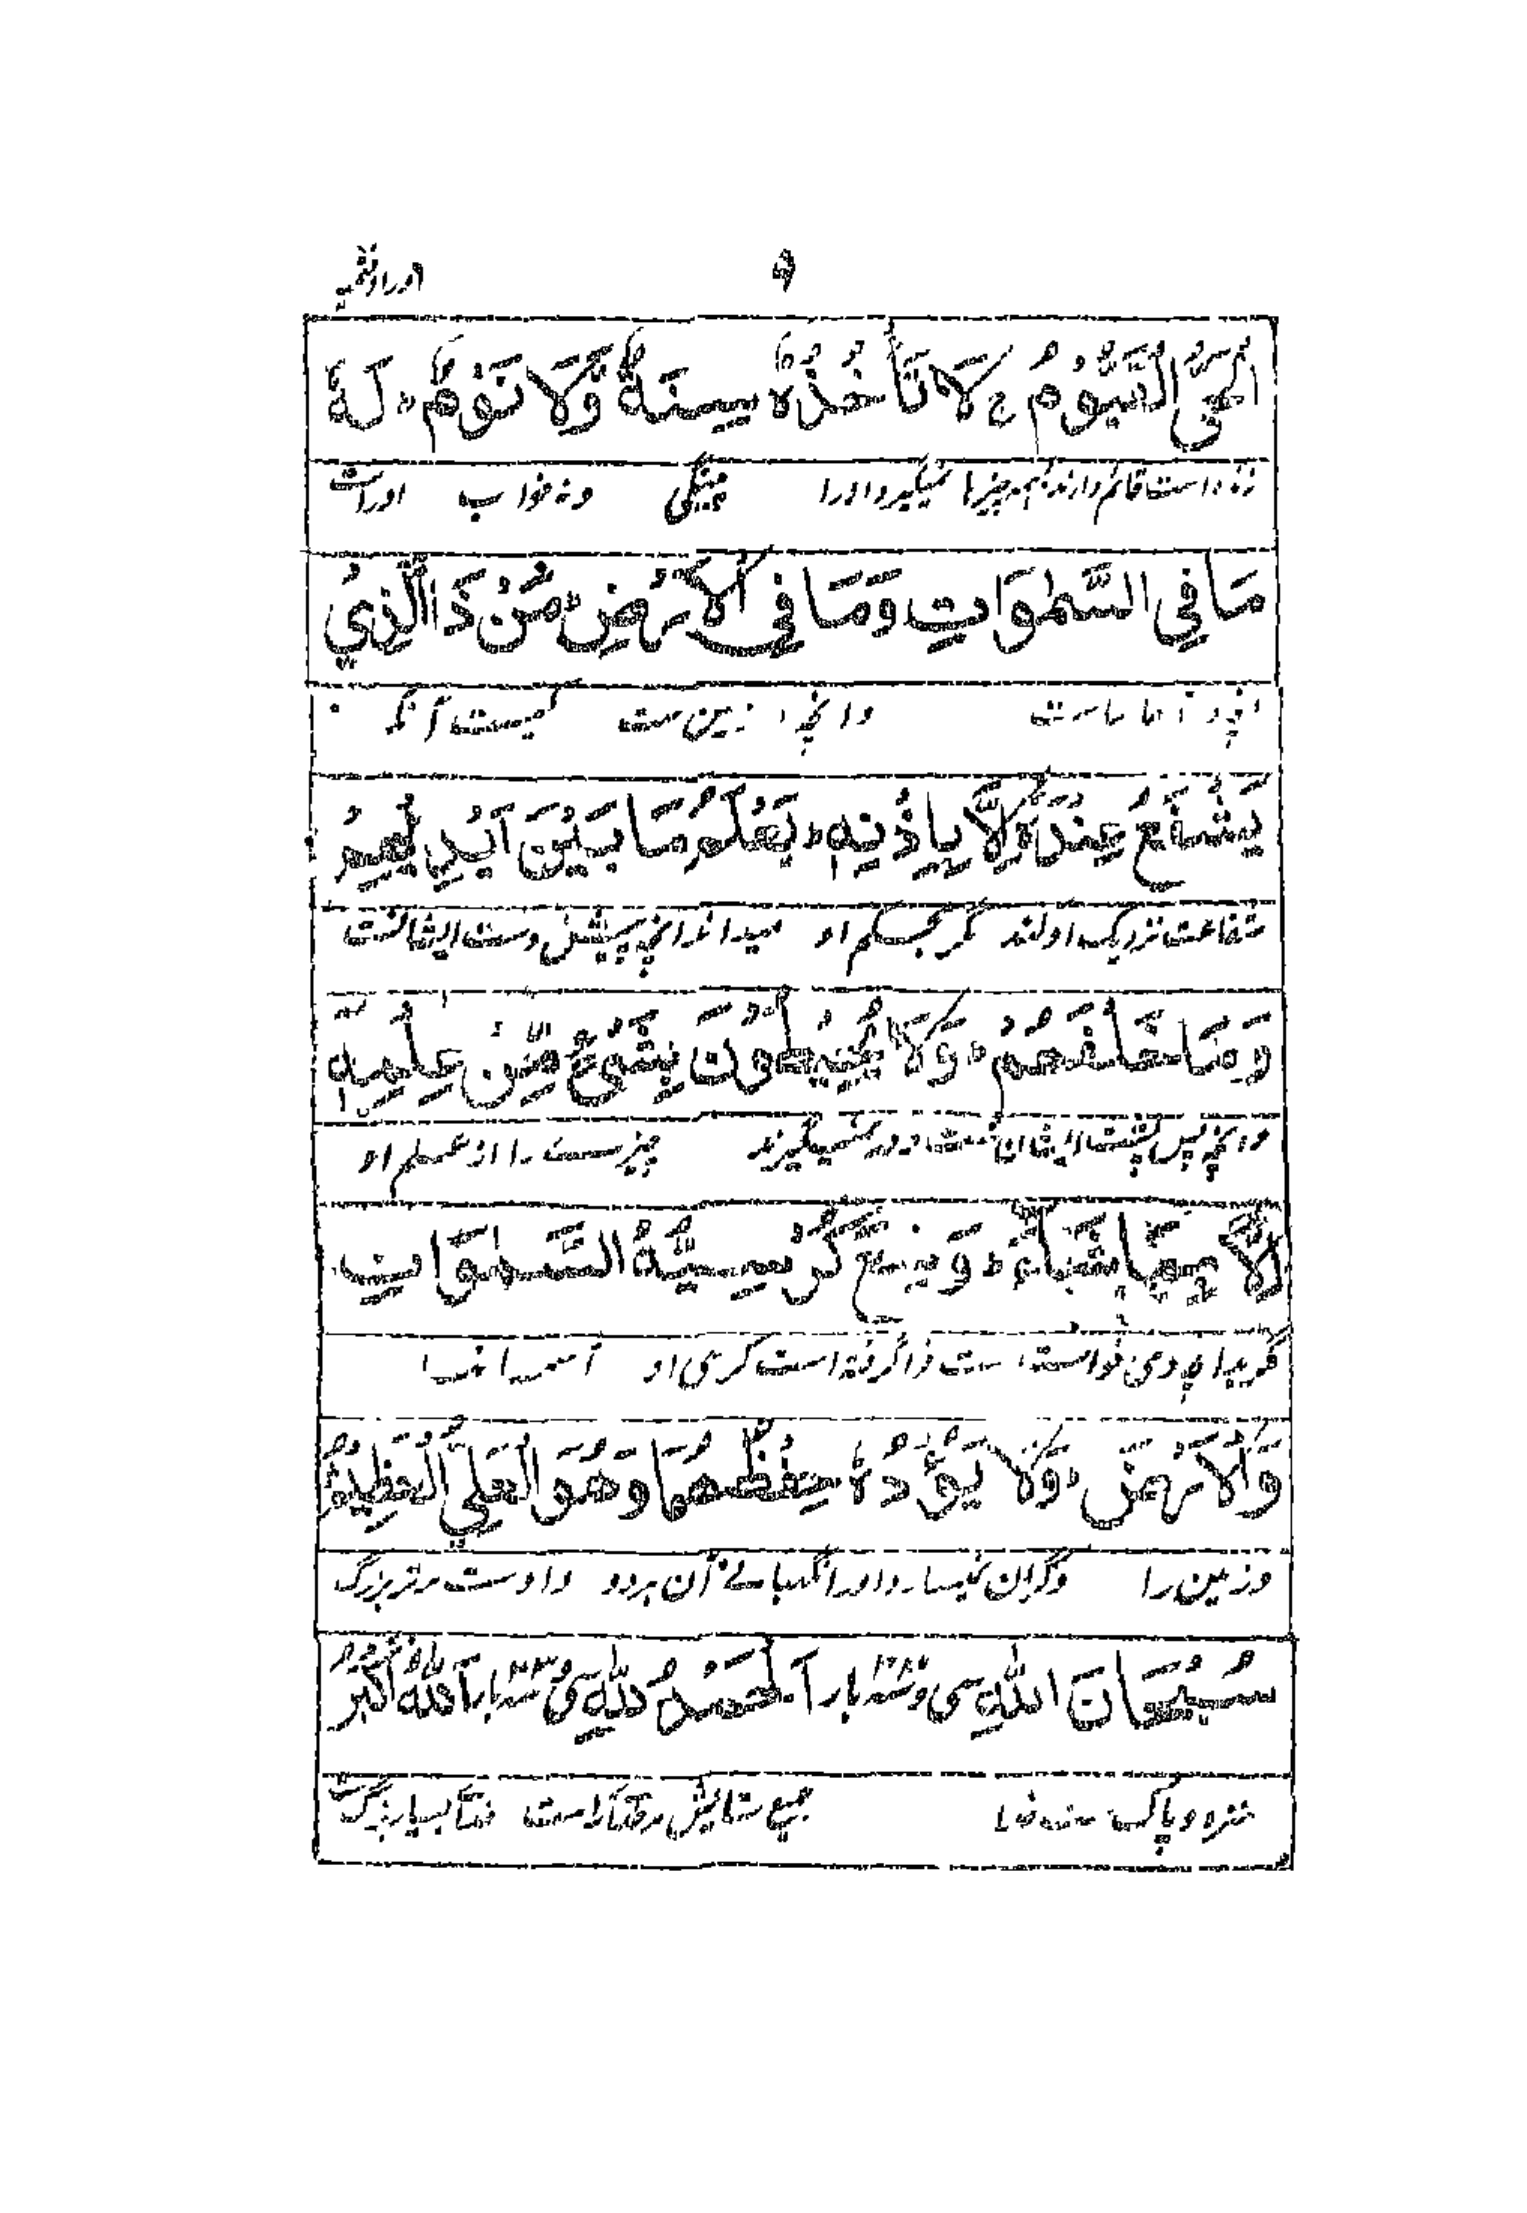 ۹ اوراد فتحیه
الْحَيُّ الْقَيُّوْمُ ج لَا تَأْخُذُهٗ سِنَةٌ وَّلَا نَوْمٌ ط لَهٗ
زنده است قائم دارنده همه چیزها نمیگیرد اورا پینکی ونه خواب اوراست
مَا فِي السَّمٰوَاتِ وَمَا فِي الْاَرْضِ ط مَنْ ذَا الَّذِيْ
وانچه زمین ست کیست آنکه
يَشْفَعُ عِنْدَهٗ اِلَّا بِاِذْنِهٖ ط يَعْلَمُ مَا بَيْنَ اَيْدِيْهِمْ
شفاعت نزدیک او کند مگر بحکم او میداند انچه پیش دست ایشانست
وَمَا خَلْفَهُمْ ط وَلَا يُحِيْطُوْنَ بِشَيْءٍ مِّنْ عِلْمِهٖ
وانچه پس پشت ایشان ست ودر نمیگیرند چیزے را از علم او
اِلَّا بِمَا شَاءَ ط وَسِعَ كُرْسِيُّهُ السَّمٰوَاتِ
خواسته ست فراگرفته است کرسی او آسمانها
وَالْاَرْضَ ط وَلَا يَؤُدُهٗ حِفْظُهُمَا وَهُوَ الْعَلِيُّ الْعَظِيْمُ
وزمین را وگران نمیسازد اورا نگهبانے آن هردو واوست برتر بزرگ
سُبْحَانَ اللّٰهِ سی وسه بار اَلْحَمْدُ لِلّٰهِ سی وسه بار اَللّٰهُ اَكْبَرُ
منزه وپاک ست خدا جمیع ستایش مر خدا راست خدا بسیار بزرگ ست